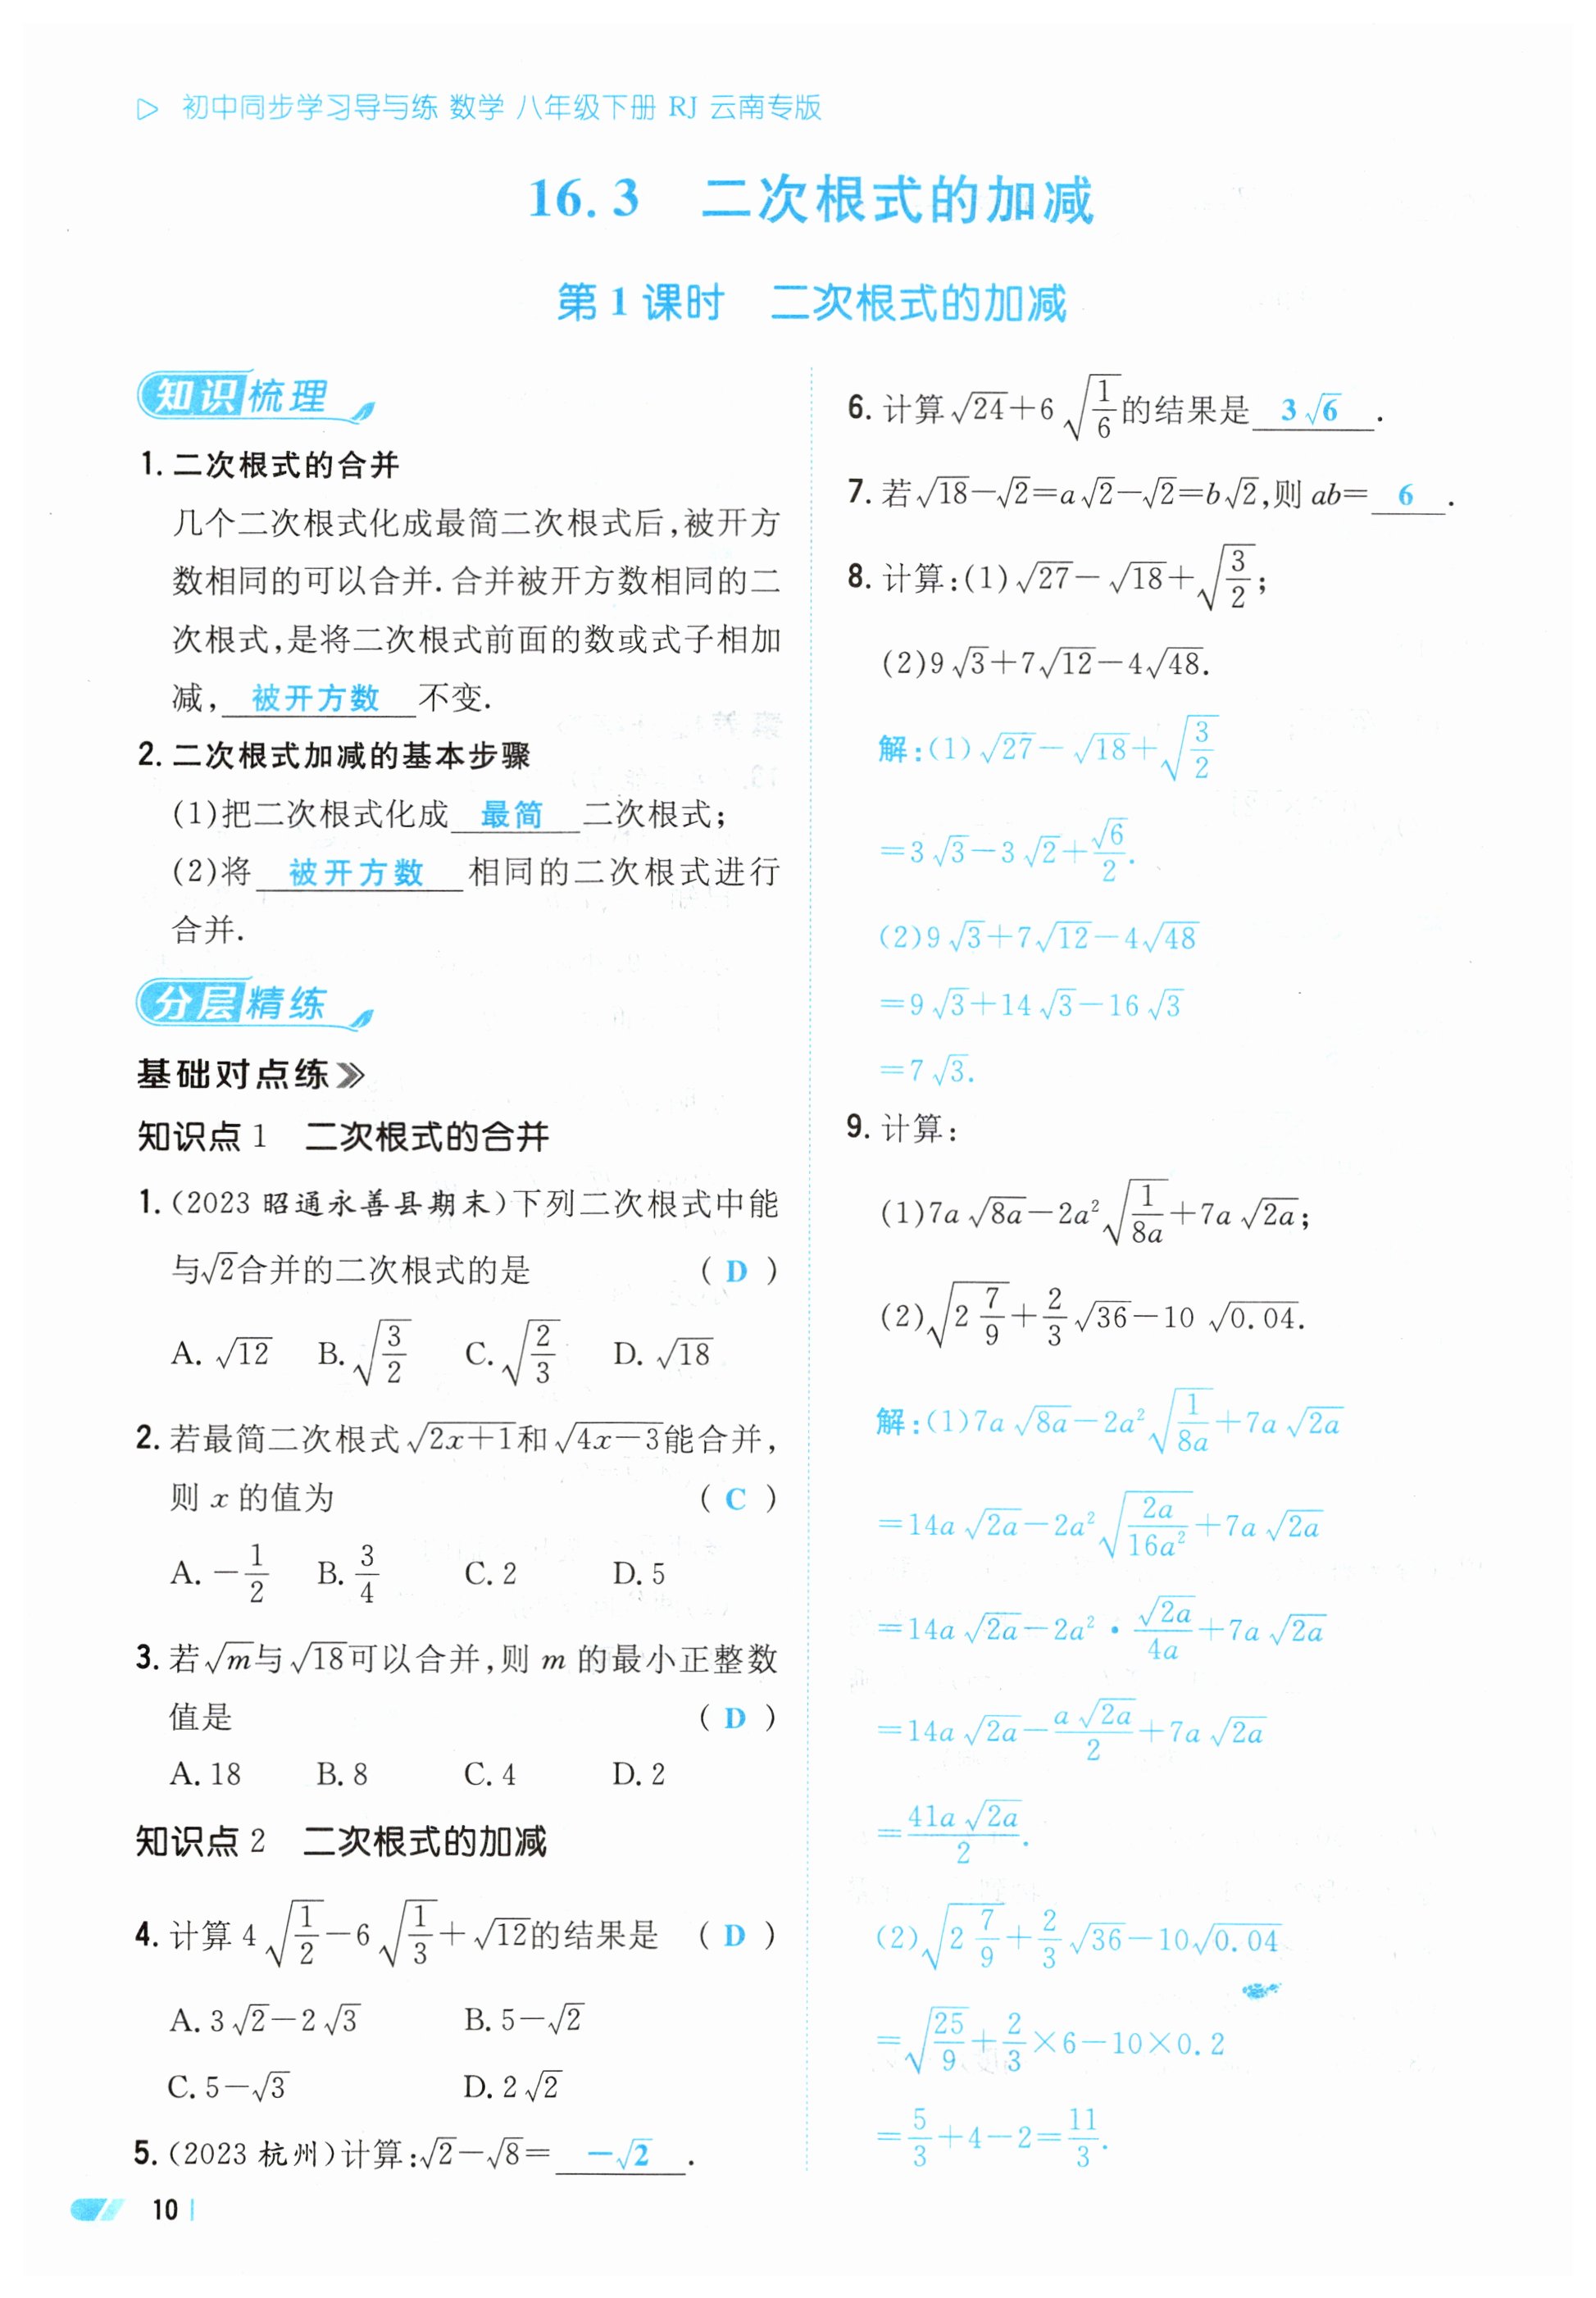 初中同步学习导与练 数学 八年级下册 RJ 云南专版
16.3 二次根式的加减
第1课时 二次根式的加减
知识梳理
1. 二次根式的合并
几个二次根式化成最简二次根式后,被开方
数相同的可以合并.合并被开方数相同的二
次根式,是将二次根式前面的数或式子相加
减, 被开方数 不变.
2. 二次根式加减的基本步骤
(1)把二次根式化成 最简 二次根式;
(2)将 被开方数 相同的二次根式进行
合并.
分层精练
基础对点练
知识点1 二次根式的合并
1. (2023 昭通永善县期末)下列二次根式中能
与√2合并的二次根式的是 ( D )
A. √12 B. √(3/2) C. √(2/3) D. √18
2. 若最简二次根式√(2x+1)和√(4x-3)能合并,
则 x 的值为 ( C )
A. -1/2 B. 3/4 C. 2 D. 5
3. 若√m与√18可以合并,则 m 的最小正整数
值是 ( D )
A. 18 B. 8 C. 4 D. 2
知识点2 二次根式的加减
4. 计算 4√(1/2)-6√(1/3)+√12的结果是 ( D )
A. 3√2-2√3 B. 5-√2
C. 5-√3 D. 2√2
5. (2023 杭州)计算:√2-√8= -√2 .
6. 计算√24+6√(1/6)的结果是 3√6 .
7. 若√18-√2=a√2-√2=b√2,则 ab= 6 .
8. 计算:(1)√27-√18+√(3/2);
(2)9√3+7√12-4√48.
解:(1)√27-√18+√(3/2)
=3√3-3√2+√6/2.
(2)9√3+7√12-4√48
=9√3+14√3-16√3
=7√3.
9. 计算:
(1)7a√(8a)-2a²√(1/(8a))+7a√(2a);
(2)√(2 7/9)+2/3√36-10√0.04.
解:(1)7a√(8a)-2a²√(1/(8a))+7a√(2a)
=14a√(2a)-2a²√(2a/(16a²))+7a√(2a)
=14a√(2a)-2a²·√(2a)/(4a)+7a√(2a)
=14a√(2a)-a√(2a)/2+7a√(2a)
=41a√(2a)/2.
(2)√(2 7/9)+2/3√36-10√0.04
=√(25/9)+2/3×6-10×0.2
=5/3+4-2=11/3.
10